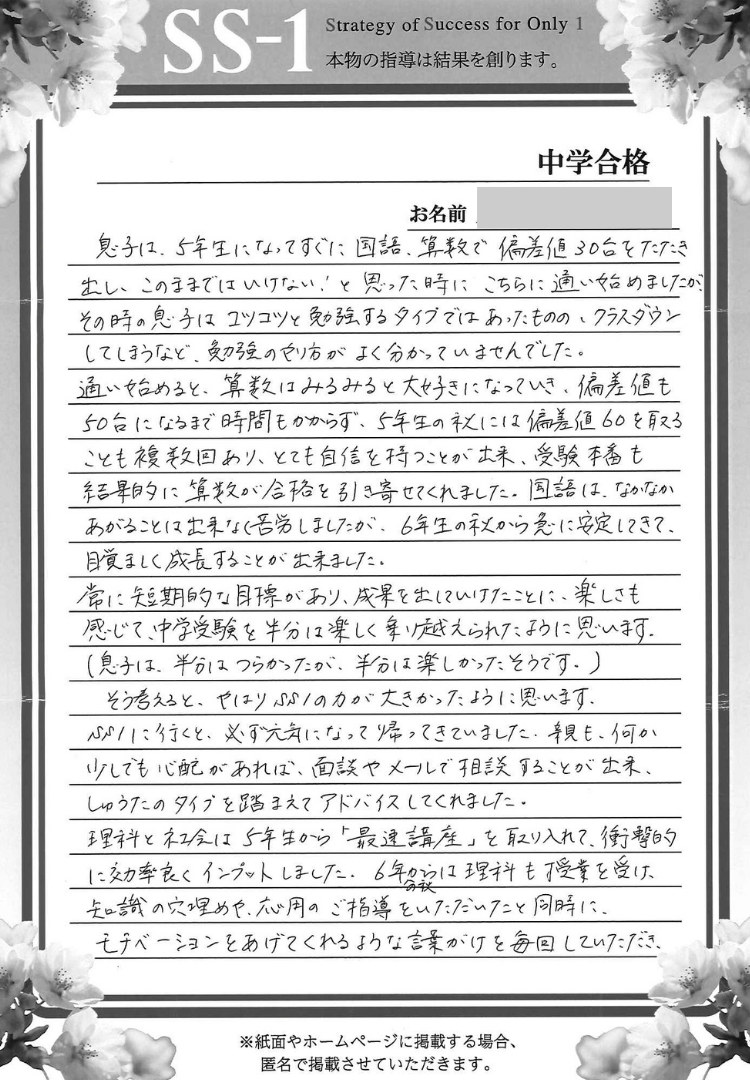 SS-1
Strategy of Success for Only 1
本物の指導は結果を創ります。
中学合格
お名前
息子は、5年生になってすぐに国語、算数で偏差値30台をたたき
出し、このままではいけない！と思った時にこちらに通い始めましたが、
その時の息子はコツコツと勉強するタイプではあったものの、クラスダウン
してしまうなど、勉強のやり方がよく分かっていませんでした。
通い始めると、算数はみるみると大好きになっていき、偏差値も
50台になるまで時間もかからず、5年生の秋には偏差値60を取る
ことも複数回あり、とても自信を持つことが出来、受験本番も
結果的に算数が合格を引き寄せてくれました。国語は、なかなか
あがることは出来なく苦労しましたが、6年生の秋から急に安定してきて、
目覚ましく成長することが出来ました。
常に短期的な目標があり、成果を出していけたことに、楽しさも
感じて、中学受験を半分は楽しく乗り越えられたように思います。
(息子は、半分はつらかったが、半分は楽しかったそうです。)
そう考えると、やはりSS1の力が大きかったように思います。
SS1に行くと、必ず元気になって帰ってきていました。親も、何か
少しでも心配があれば、面談やメールで相談することが出来、
しゅうたのタイプを踏まえてアドバイスしてくれました。
理科と社会は5年生から「最速講座」を取り入れて、衝撃的
に効率良くインプットしました。6年の秋からは理科も授業を受け、
知識の穴埋めや、応用のご指導をいただいたと同時に、
モチベーションをあげてくれるような言葉がけを毎回していただき、
※紙面やホームページに掲載する場合、
匿名で掲載させていただきます。